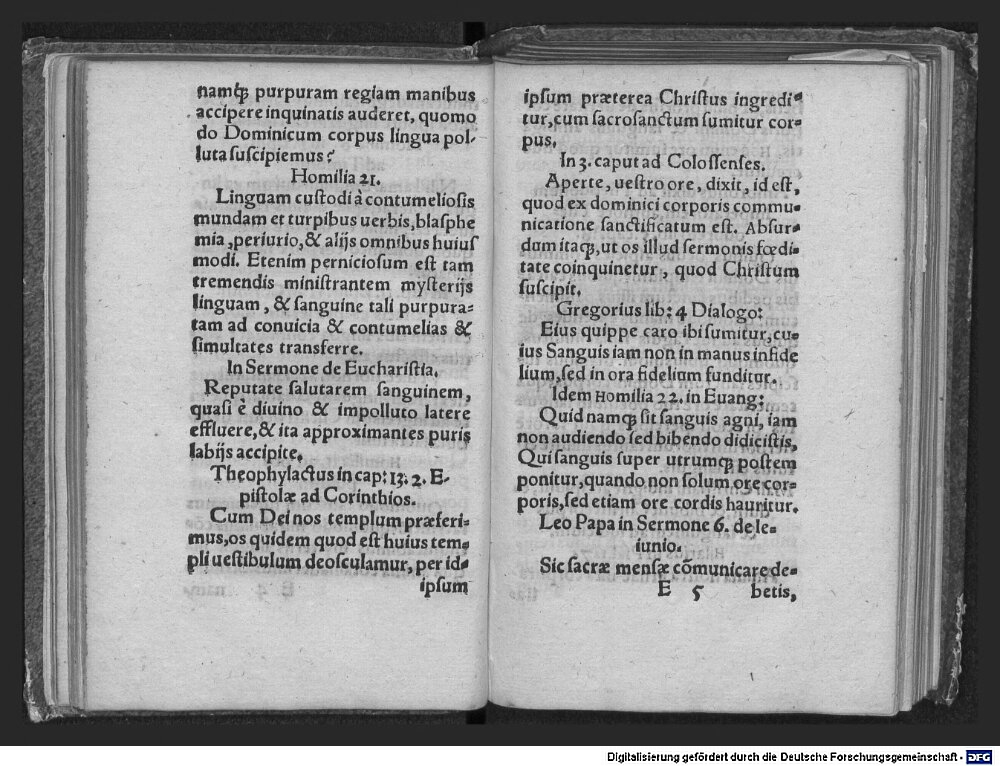 namq́; purpuram regiam manibus
accipere inquinatis auderet, quomo
do Dominicum corpus lingua pol-
luta suscipiemus?
Homilia 21.
Linguam custodi à contumeliosis
mundam et turpibus uerbis, blasphe
mia, periurio, & alijs omnibus huius
modi. Etenim perniciosum est tam
tremendis ministrantem mysterijs
linguam, & sanguine tali purpura-
tam ad conuicia & contumelias &
simultates transferre.
In Sermone de Eucharistia.
Reputate salutarem sanguinem,
quasi è diuino & impolluto latere
effluere, & ita approximantes puris
labijs accipite.
Theophylactus in cap: 13. 2. E-
pistolæ ad Corinthios.
Cum Dei nos templum præferi-
mus, os quidem quod est huius tem-
pli uestibulum deosculamur, per id-
ipsum
ipsum præterea Christus ingredi-
tur, cum sacrosanctum sumitur cor-
pus.
In 3. caput ad Colossenses.
Aperte, uestro ore, dixit, id est,
quod ex dominici corporis commu-
nicatione sanctificatum est. Absur-
dum itaq́;, ut os illud sermonis fœdi-
tate coinquinetur, quod Christum
suscipit.
Gregorius lib: 4 Dialogo:
Eius quippe caro ibi sumitur, cu-
ius Sanguis iam non in manus infide
lium, sed in ora fidelium funditur.
Idem Homilia 22. in Euang:
Quid namq́; sit sanguis agni, iam
non audiendo sed bibendo didicistis,
Qui sanguis super utrumq́; postem
ponitur, quando non solum ore cor-
poris, sed etiam ore cordis hauritur.
Leo Papa in Sermone 6. de Ie-
iunio.
Sic sacræ mensæ cōmunicare de-
E 5 betis,
Digitalisierung gefördert durch die Deutsche Forschungsgemeinschaft - DFG